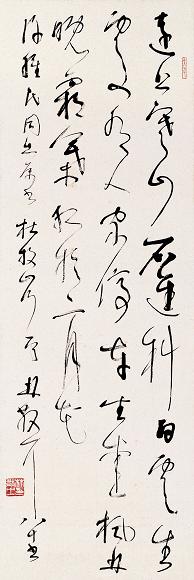 遠上寒山石逕斜白雲生
處有人家停車坐愛楓林
晚霜葉紅於二月花
民同志属 杜牧山行 林散耳